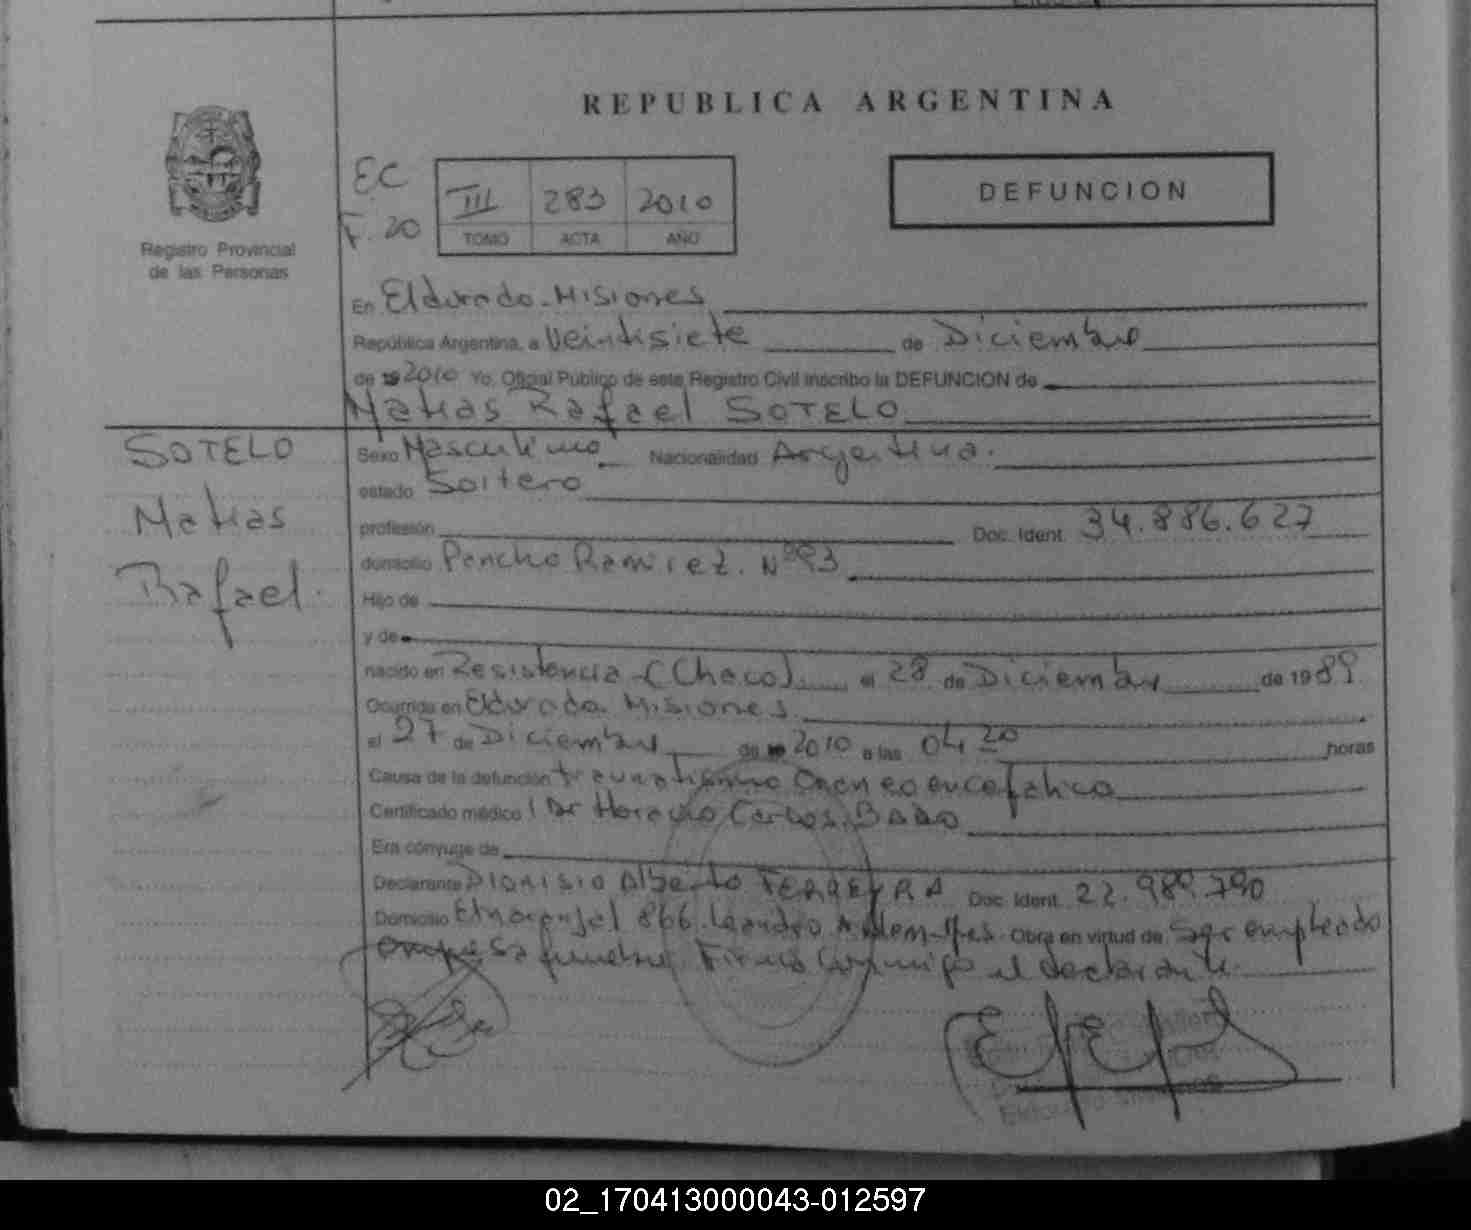 REPUBLICA ARGENTINA
EC
F. 20
III 283 2010
TOMO ACTA AÑO
DEFUNCION
Registro Provincial
de las Personas
En Eldorado - Misiones
República Argentina, a Veintisiete de Diciembre
de 2010 Yo, Oficial Público de este Registro Civil inscribo la DEFUNCION de
Matias Rafael SOTELO
SOTELO
Matias
Rafael.
Sexo Masculino Nacionalidad Argentina.
estado Soltero
profesión Doc. Ident. 34.886.627
domicilio Pancho Ramirez. Nº 93
Hijo de
y de
nacido en Resistencia - (Chaco) el 28 de Diciembre de 1989
Ocurrida en Eldorado Misiones
el 27 de Diciembre de 2010 a las 04 20 horas
Causa de la defunción traumatismo Craneoencefalico
Certificado médico Dr Horacio Carlos
Era cónyuge de
Declarante Dionisio Alberto FERREYRA Doc. Ident. 22.989.790
Domicilio El naranjal 866. Leandro N. Alem - Mnes. Obra en virtud de Ser empleado
empresa funebre Firma conmigo el declarante.
02_170413000043-012597